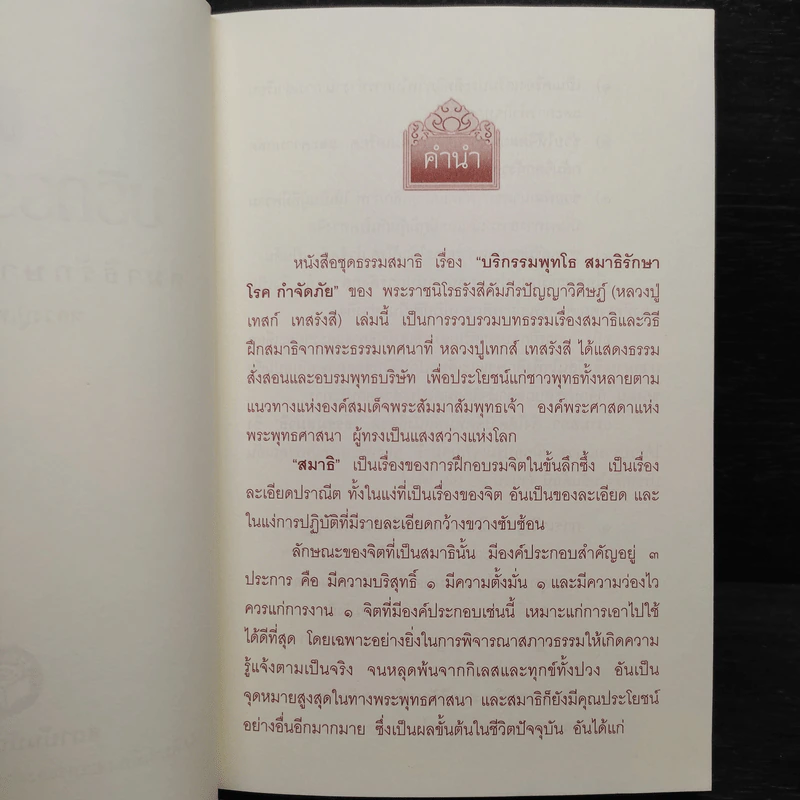 คำนำ
หนังสือชุดธรรมสมาธิ เรื่อง “บริกรรมพุทโธ สมาธิรักษา
โรค กำจัดภัย” ของ พระราชนิโรธรังสีคัมภีรปัญญาวิศิษฏ์ (หลวงปู่
เทสก์ เทสรังสี) เล่มนี้ เป็นการรวบรวมบทธรรมเรื่องสมาธิและวิธี
ฝึกสมาธิจากพระธรรมเทศนาที่ หลวงปู่เทกส์ เทสรังสี ได้แสดงธรรม
สั่งสอนและอบรมพุทธบริษัท เพื่อประโยชน์แก่ชาวพุทธทั้งหลายตาม
แนวทางแห่งองค์สมเด็จพระสัมมาสัมพุทธเจ้า องค์พระศาสดาแห่ง
พระพุทธศาสนา ผู้ทรงเป็นแสงสว่างแห่งโลก
“สมาธิ” เป็นเรื่องของการฝึกอบรมจิตในขั้นลึกซึ้ง เป็นเรื่อง
ละเอียดปราณีต ทั้งในแง่ที่เป็นเรื่องของจิต อันเป็นของละเอียด และ
ในแง่การปฏิบัติที่มีรายละเอียดกว้างขวางซับซ้อน
ลักษณะของจิตที่เป็นสมาธินั้น มีองค์ประกอบสำคัญอยู่ ๓
ประการ คือ มีความบริสุทธิ์ ๑ มีความตั้งมั่น ๑ และมีความว่องไว
ควรแก่การงาน ๑ จิตที่มีองค์ประกอบเช่นนี้ เหมาะแก่การเอาไปใช้
ได้ดีที่สุด โดยเฉพาะอย่างยิ่งในการพิจารณาสภาวธรรมให้เกิดความ
รู้แจ้งตามเป็นจริง จนหลุดพ้นจากกิเลสและทุกข์ทั้งปวง อันเป็น
จุดหมายสูงสุดในทางพระพุทธศาสนา และสมาธิก็ยังมีคุณประโยชน์
อย่างอื่นอีกมากมาย ซึ่งเป็นผลขั้นต้นในชีวิตปัจจุบัน อันได้แก่